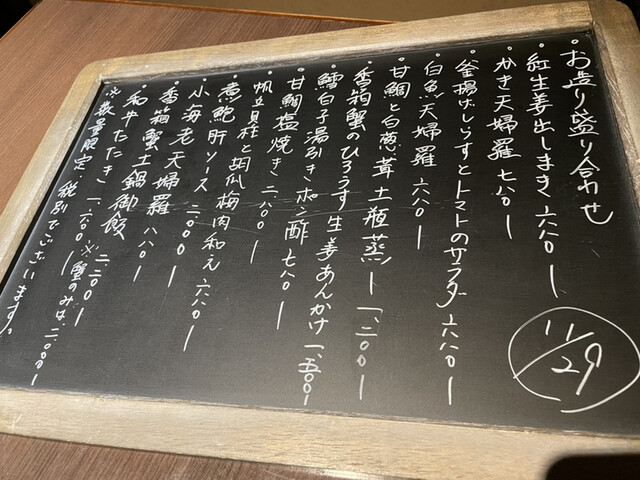 ・お造り盛り合わせ
・紅生姜出しまき 六八〇ー
・かき天婦羅 七八〇ー
・釜揚げしらすとトマトのサラダ 六八〇ー
・白魚天婦羅 六八〇ー
・甘鯛と白葱茸土瓶蒸し 一、二〇〇ー
・香箱蟹のひろうす生姜あんかけ 一、五〇〇ー
・鱈白子湯引きポン酢 七八〇ー
・甘鯛塩焼き 二八〇〇ー
・帆立貝柱と胡瓜梅肉和え 六八〇ー
・煮鮑肝ソース 二〇〇〇ー
・小海老天婦羅 八八〇ー
・香箱蟹土鍋御飯 二、二〇〇ー ※蟹のみは二〇〇〇ー
・和牛たたき 一、六〇〇ー
※数量限定 税別でございます。
11/29